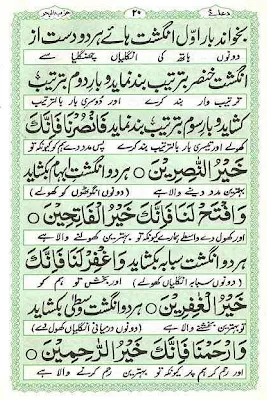 دعائے
۲۰
حزب البحر
بخواند بار اوّل انگشت ہائے ہر دو دست از
دونوں ہاتھ کی انگلیاں چھنگلیا سے
انگشت خنصر بترتیب بند نماید و بار دوم بترتیب
ترتیب وار بند کرے اور دوسری بار بالترتیب
کشاید و بار سوم بترتیب بند نماید فَانْصُرْنَا فَاِنَّكَ
کھولے اور تیسری بار بالترتیب بند کرے پس مدد دے ہم کو کیونکہ تو
خَيْرُ النّٰصِرِيْنَ ○ ہر دو انگشت بہام بکشاید
بہترین مدد دینے والا ہے (دونوں انگوٹھوں کو کھولے)
وَافْتَحْ لَنَا فَاِنَّكَ خَيْرُ الْفَاتِحِيْنَ ○
اور کھول دے واسطے ہمارے کیونکہ تو بہترین کھولنے والا ہے
ہر دو انگشت سبابہ بکشاید وَاغْفِرْ لَنَا فَاِنَّكَ
(دونوں سبابہ انگلیاں کھولے) اور بخش تو ہم کو
خَيْرُ الْغٰفِرِيْنَ ○ ہر دو انگشت وسطٰی بکشاید
تو بہترین بخشنے والا ہے (دونوں درمیانی انگلیاں کھول دے)
وَارْحَمْنَا فَاِنَّكَ خَيْرُ الرّٰحِمِيْنَ ○
اور رحم کر ہم پر کیونکہ تو بہترین رحم کرنے والا ہے